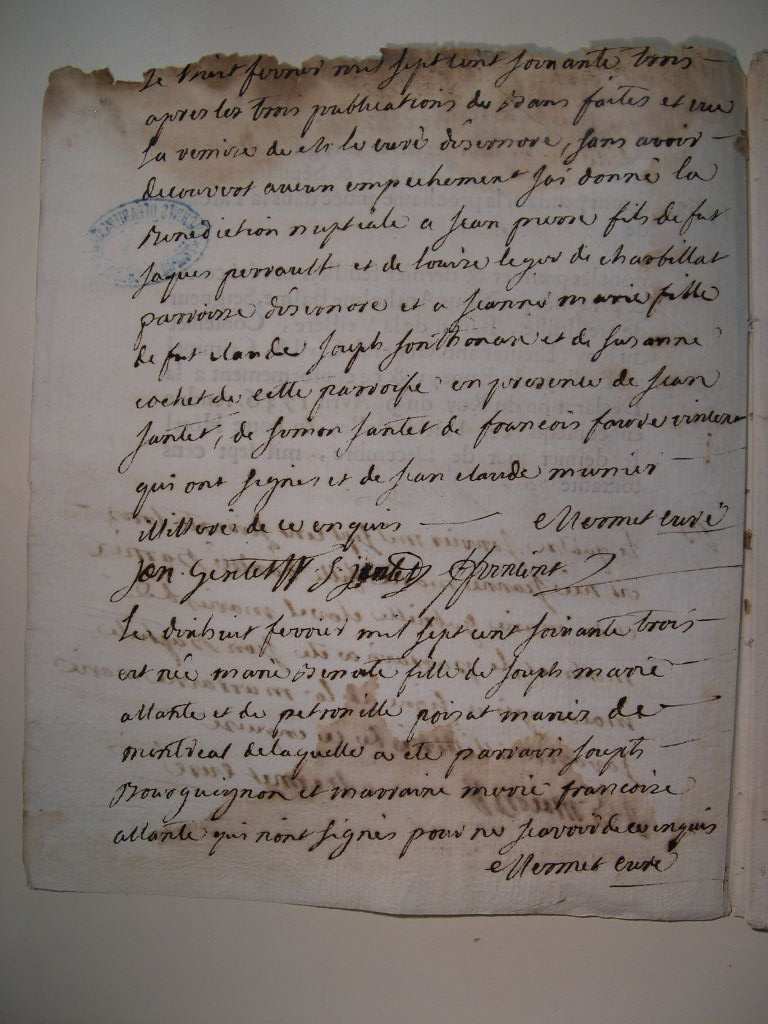 Le huit fevrier mil sept cent soixante trois
apres les trois publications de Bans faites et vue
la remise de Mr le curé disernore, sans avoir
decouvert aucun empechement jai donné la
Benediction nuptiale a jean pierre fils de fut
jaques perrault et de louise leger de charbillat
parroisse disernore et a jeanne marie fille
de fut claude joseph sonthonax et de susanne
cochet de cette parroisse en presence de jean
jantet, de simon jantet de francois favre vincent
qui ont signes et de jean claude munier
illitteré de ce enquis Mermet curé
jan Gentet S. jantet f vincent
Le dixhuit fevrier mil sept cent soixante trois
est née marie Benoite fille de joseph marie
allante et de petronille poisat mariés de
montreal de laquelle a eté parrain joseph
Bourgueignon et marraine marie francoise
allante qui n'ont signés pour ne scavoir de ce enquis
Mermet curé